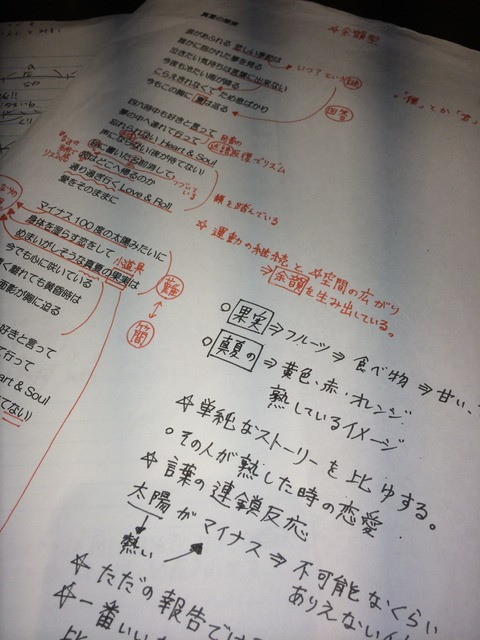 真夏の果実
☆余韻型
涙があふれる 悲しい季節は
誰かに抱かれた夢を見る
泣きたい気持ちは言葉に出来ない
今夜も冷たい雨が降る
こらえきれなくて ため息ばかり
今もこの胸に 夏は巡る
いつ?という謎
回答
四六時中も好きと言って
夢の中へ連れて行って
忘れられない Heart & Soul
声にならない
夜が待てない
砂に書いた名前消して
波はどこへ帰るのか
通り過ぎ行く Love & Roll
愛をそのままに
つづいている
韻を踏んでいる
マイナス100度の太陽みたいに
身体を湿らす恋をして
めまいがしそうな真夏の果実は
今でも心に咲いている
小道具
遠く離れても黄昏時は
面影が胸に迫る
好きと言って
て行って
eart & Soul
てない
☆運動の継続と☆空間の広がり
⇒余韻を生み出している。
○果実⇒フルーツ⇒食べ物⇒甘い、
○真夏の⇒黄色、赤・オレンジ
熟しているイメージ
☆単純なストーリーを比ゆする。
○その人が熟した時の恋愛
☆言葉の連鎖反応
太陽がマイナス⇒不可能なくらい
熱い
ありえない
☆ただの報告では
☆一番いい